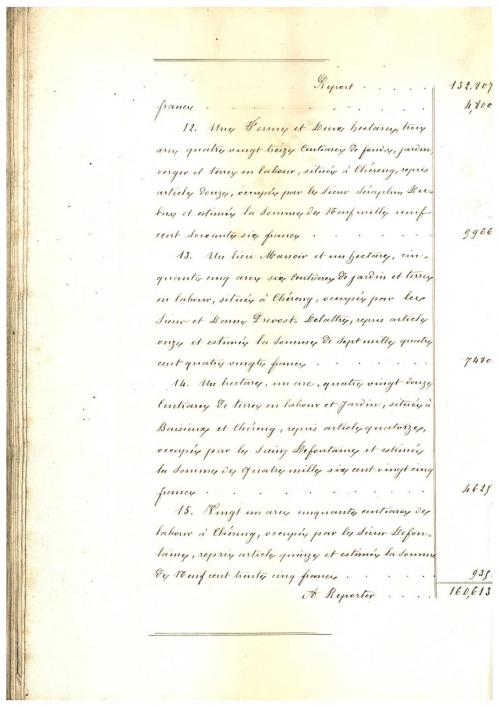 Report . . . . . 132.807
francs . . . . . . . . 4,800
12. Une Ferme et Deux hectares, trois
ares quatre vingt treize Centiares de fonds, jardin,
verger et terres en labour, situés à Chéreng, repris
article douze, occupés par le sieur Séraphin
et estimés la Somme de Neuf mille neuf
cent soixante six francs . . . . . . 9966
13. Un lieu Manoir et un hectare, cin-
quante cinq ares six Centiares de jardin et terres
en labour, situés à Chéreng, occupés par les
Sieur et Dame Prevost-Delattre, repris article
onze et estimés la somme de Sept mille quatre
cent quatre vingts francs . . . . . . 7480
14. Un hectare, un are, quatre vingt douze
Centiares de terres en labour et Jardin, situés à
Baisieux et Chéreng, repris article quatorze,
occupés par le Sieur Defontaine et estimés
la Somme de Quatre mille six cent vingt cinq
francs . . . . . . . . 4625
15. Vingt un ares cinquante centiares de
labour à Chéreng, occupés par le Sieur Defon-
taine, repris article quinze et estimés la somme
de Neuf cent trente cinq francs . . . . . 935
A Reporter . . . . 160,613